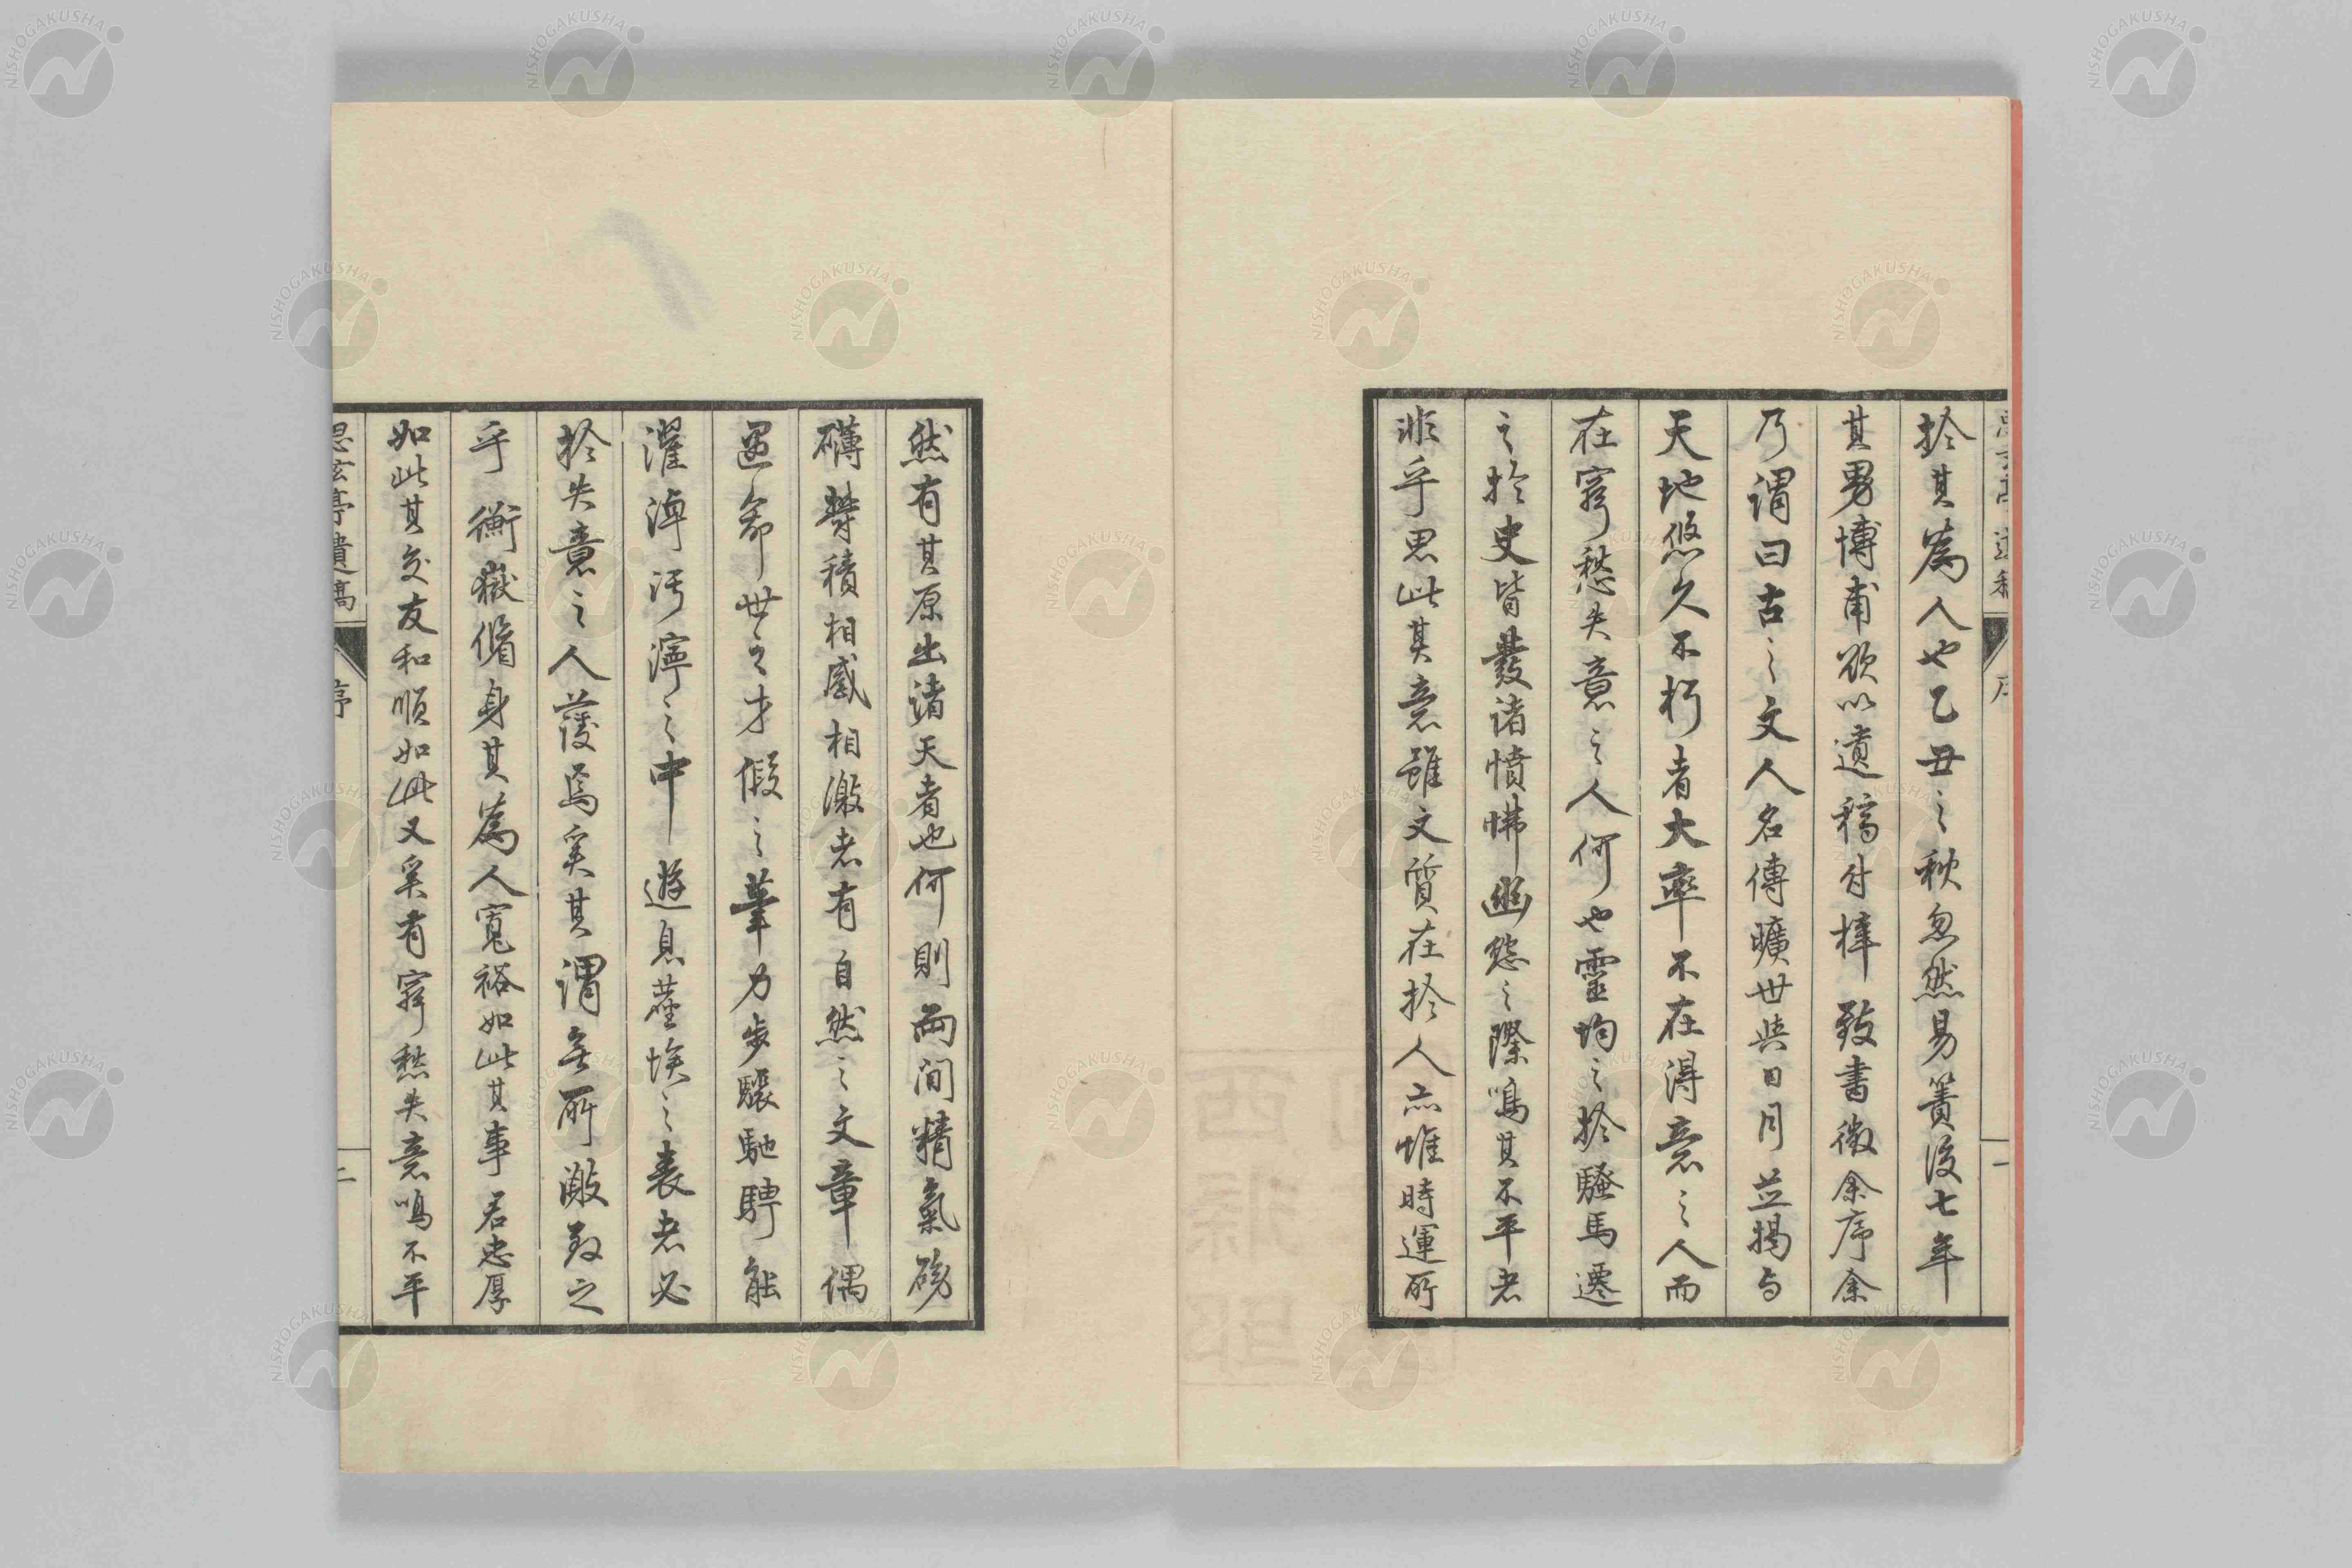 於其爲人也乙丑之秋忽然易簀後七年
其男博甫欲以遺稿付梓致書徵余序余
乃謂曰古之文人名傳曠世與日月並揭与
天地悠久不朽者大率不在得意之人而
在窮愁失意之人何也靈均之於騷馬遷
之於史皆發諸憤悱幽愁之際鳴其不平者
非乎思此其意雖文質在於人亦惟時運所
然有其原出諸天者也何則兩間精氣磅
礴欝積相感相激者有自然之文章偶
遇命世之才假之筆力步驟馳騁能
濯淖汚濘之中遊息塵埃之表者必
於失意之人蘐焉奚其謂無所激致之
乎衡嶽脩身其爲人寬裕如此其事君忠厚
如此其交友和順如此又奚有窮愁失意鳴不平
思玄亭遺稿
序
二
一
NISHOGAKUSHA